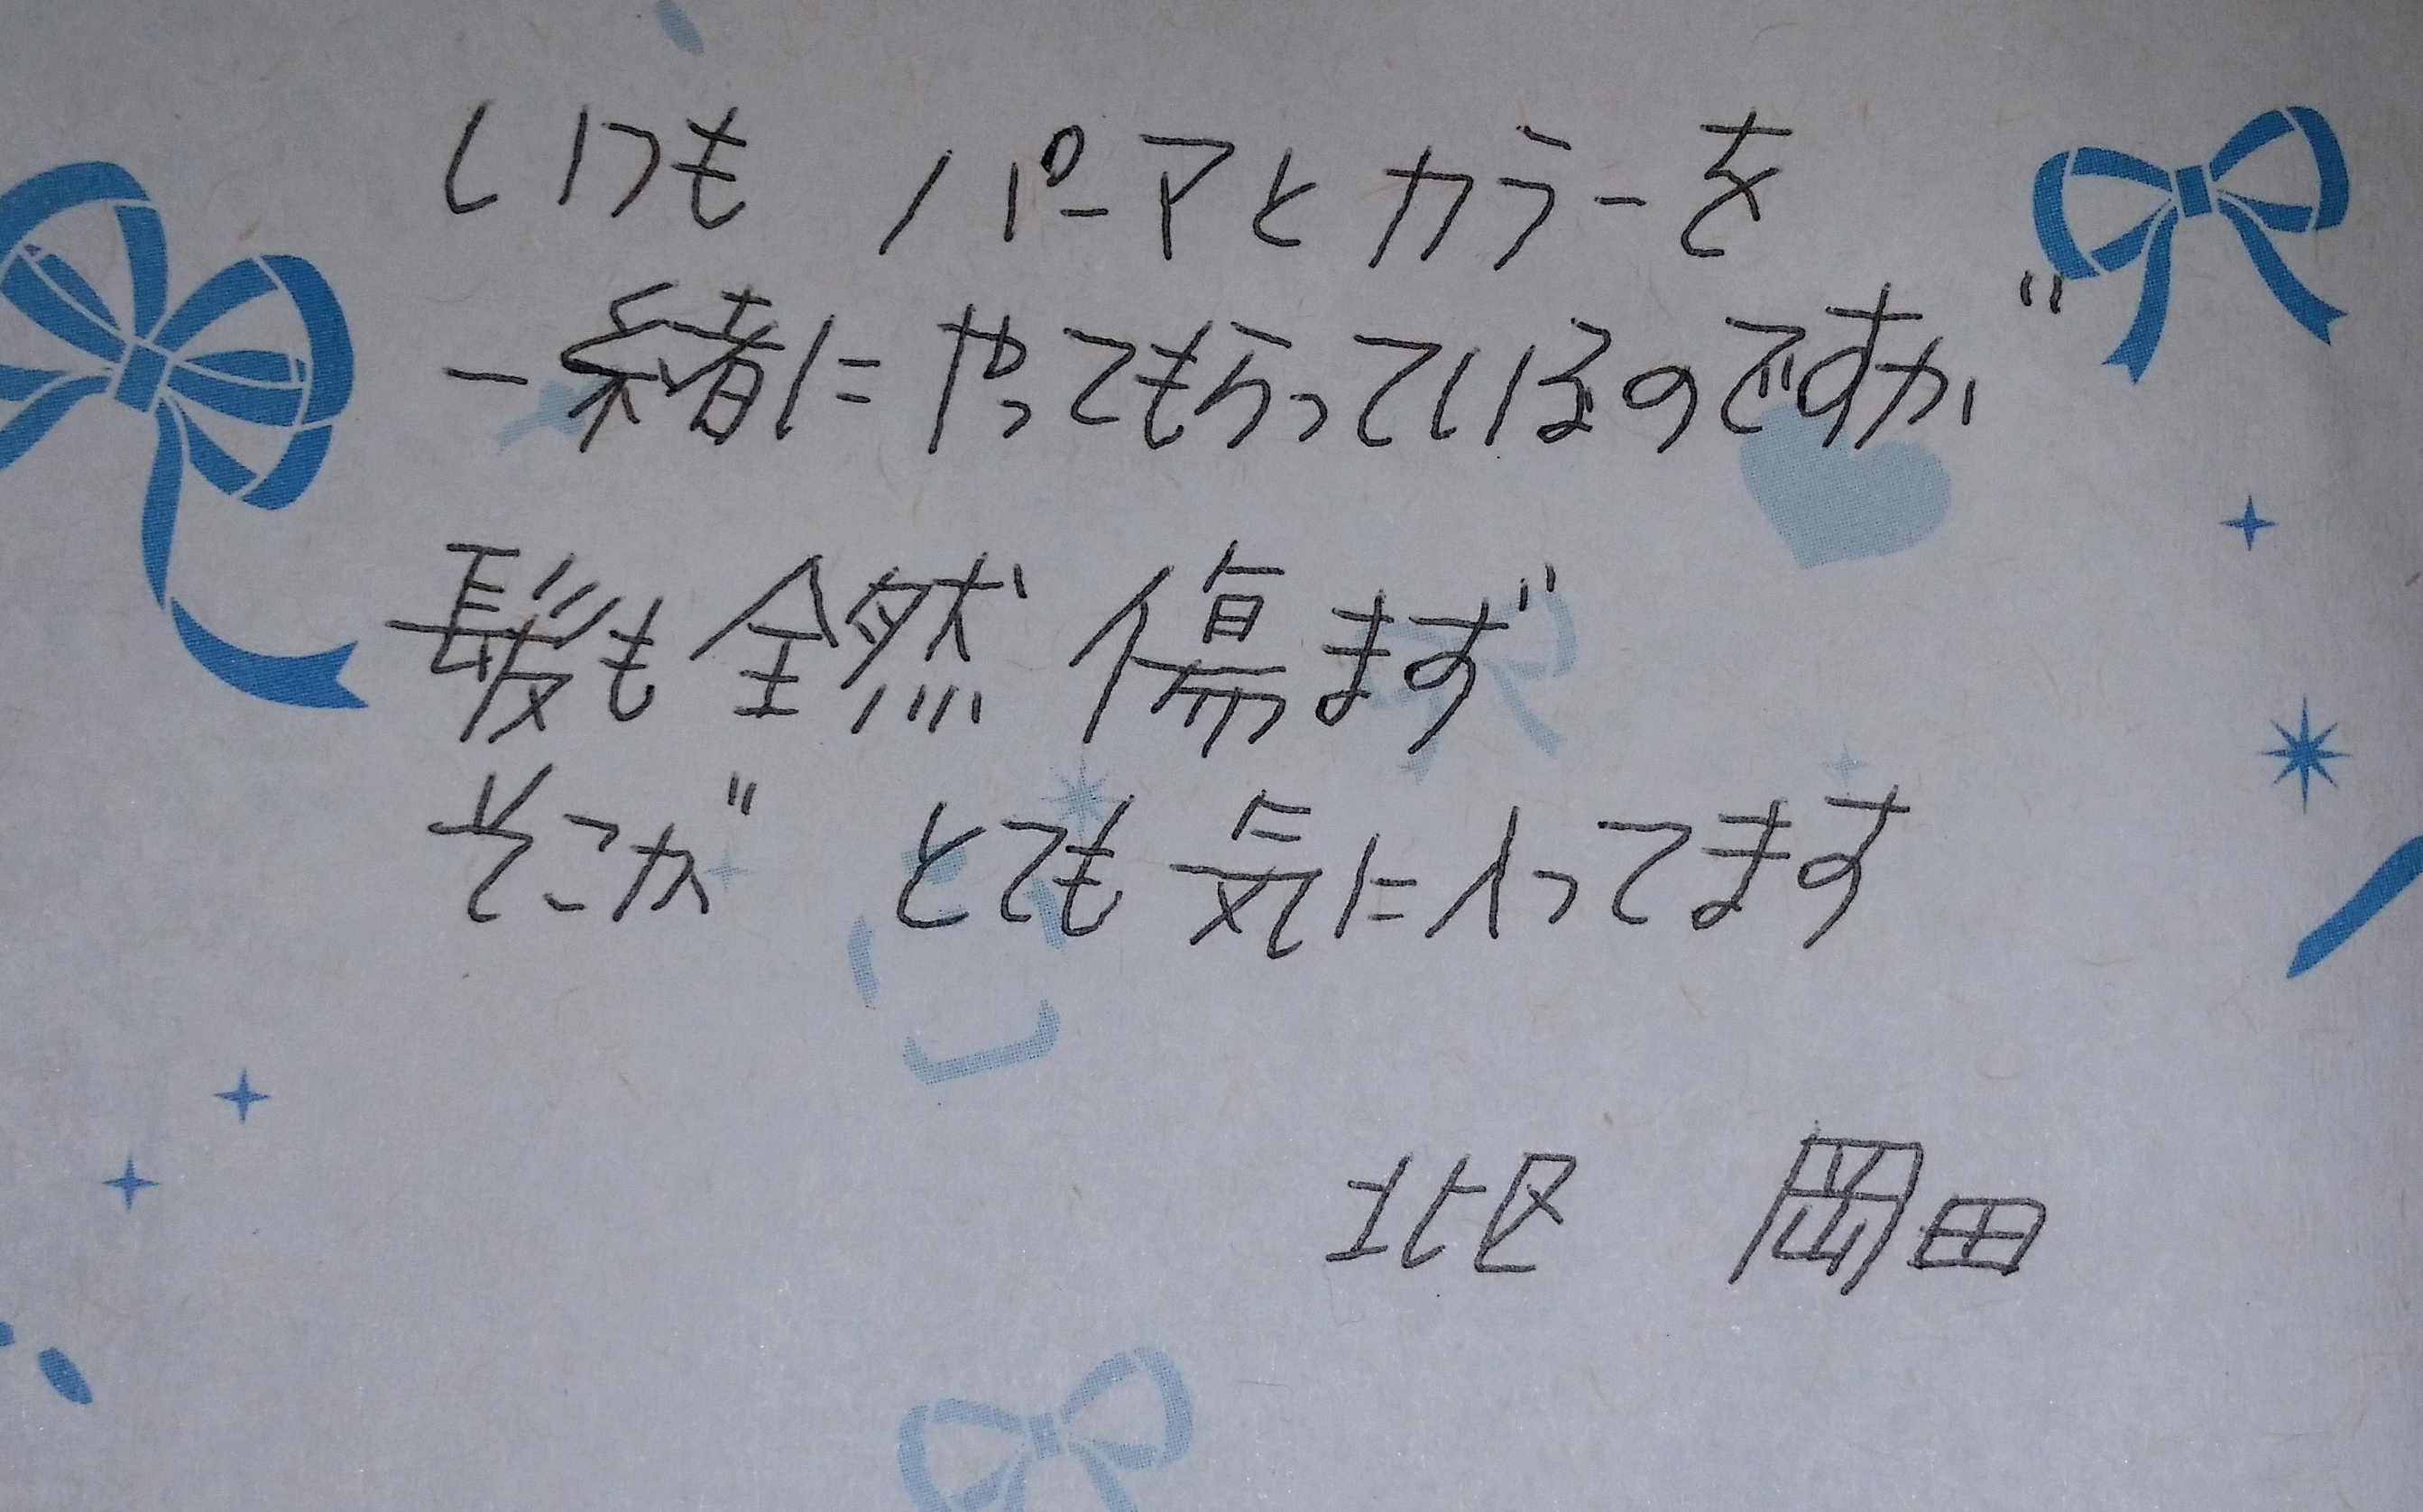 いつも パーマとカラーを
一緒に やってもらっているのですが
髪も全然 傷まず
そこが とても気に入ってます
北区 岡田